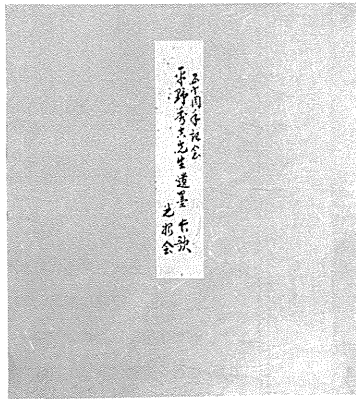 五十周年記念
平野秀吉先生遺墨 長歌
会